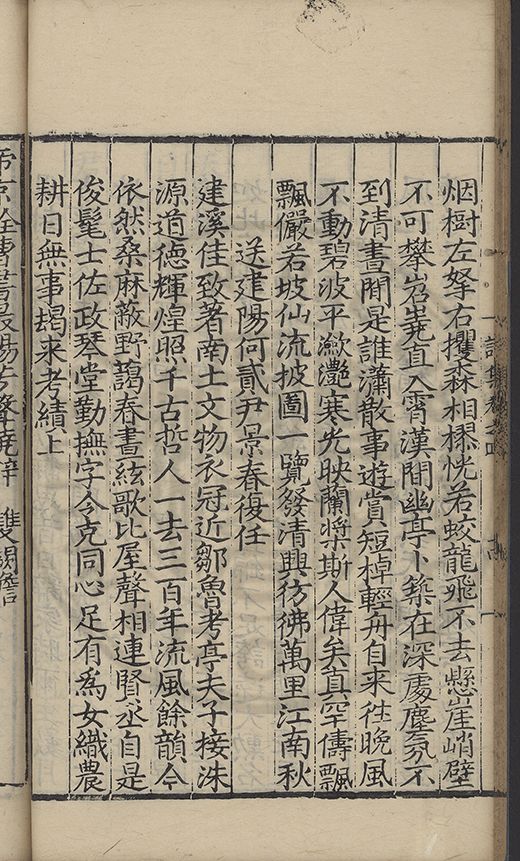 烟樹左拏右攫森相樛恍若蛟龍飛不去懸崖峭壁
不可攀岧嶤直入霄漢間幽亭卜築在深處塵氛不
到清晝閒是誰瀟散事遊賞短棹輕舟自来往晚風
不動碧波平瀲灔寒光映蘭槳斯人偉矣真罕儔飄
飄儼若坡仙流披圖一覽發清興彷彿萬里江南秋
送建陽何貳尹景春復任
建溪佳致著南土文物衣冠近鄒魯考亭夫子接洙
源道德輝煌照千古哲人一去三百年流風餘韻今
依然桑麻蔽野藹春晝絃歌比屋聲相連賢丞自是
俊髦士佐政琴堂勤撫字令克同心足有為女織農
耕日無事朅来考績上